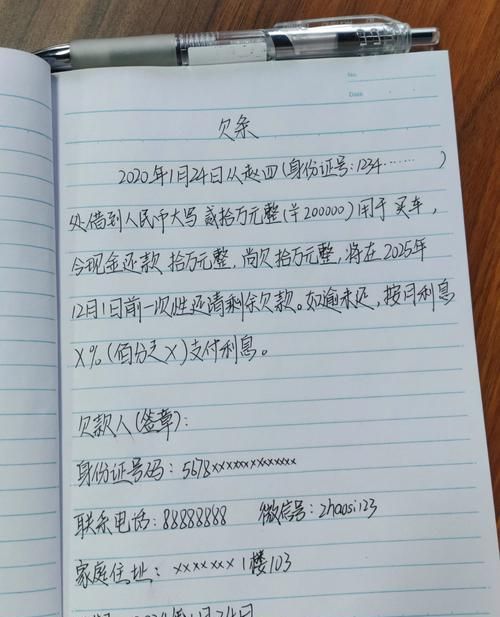 No.
Date
欠条
2020年1月24日从赵四(身份证号:1234………)
处借到人民币大写 贰拾万元整(¥200000)用于买车,
今现金还款 拾万元整,尚欠拾万元整,将在2025年
12月1日前一次性还请剩余欠款。如逾未还,按月利息
X%(佰分之X)支付利息。
欠款人(签章):
身份证号码:5678xxxxxxxxxxxx
联系电话:88888888 微信号:zhaosi123
家庭住址:xxxxxxx 1楼103